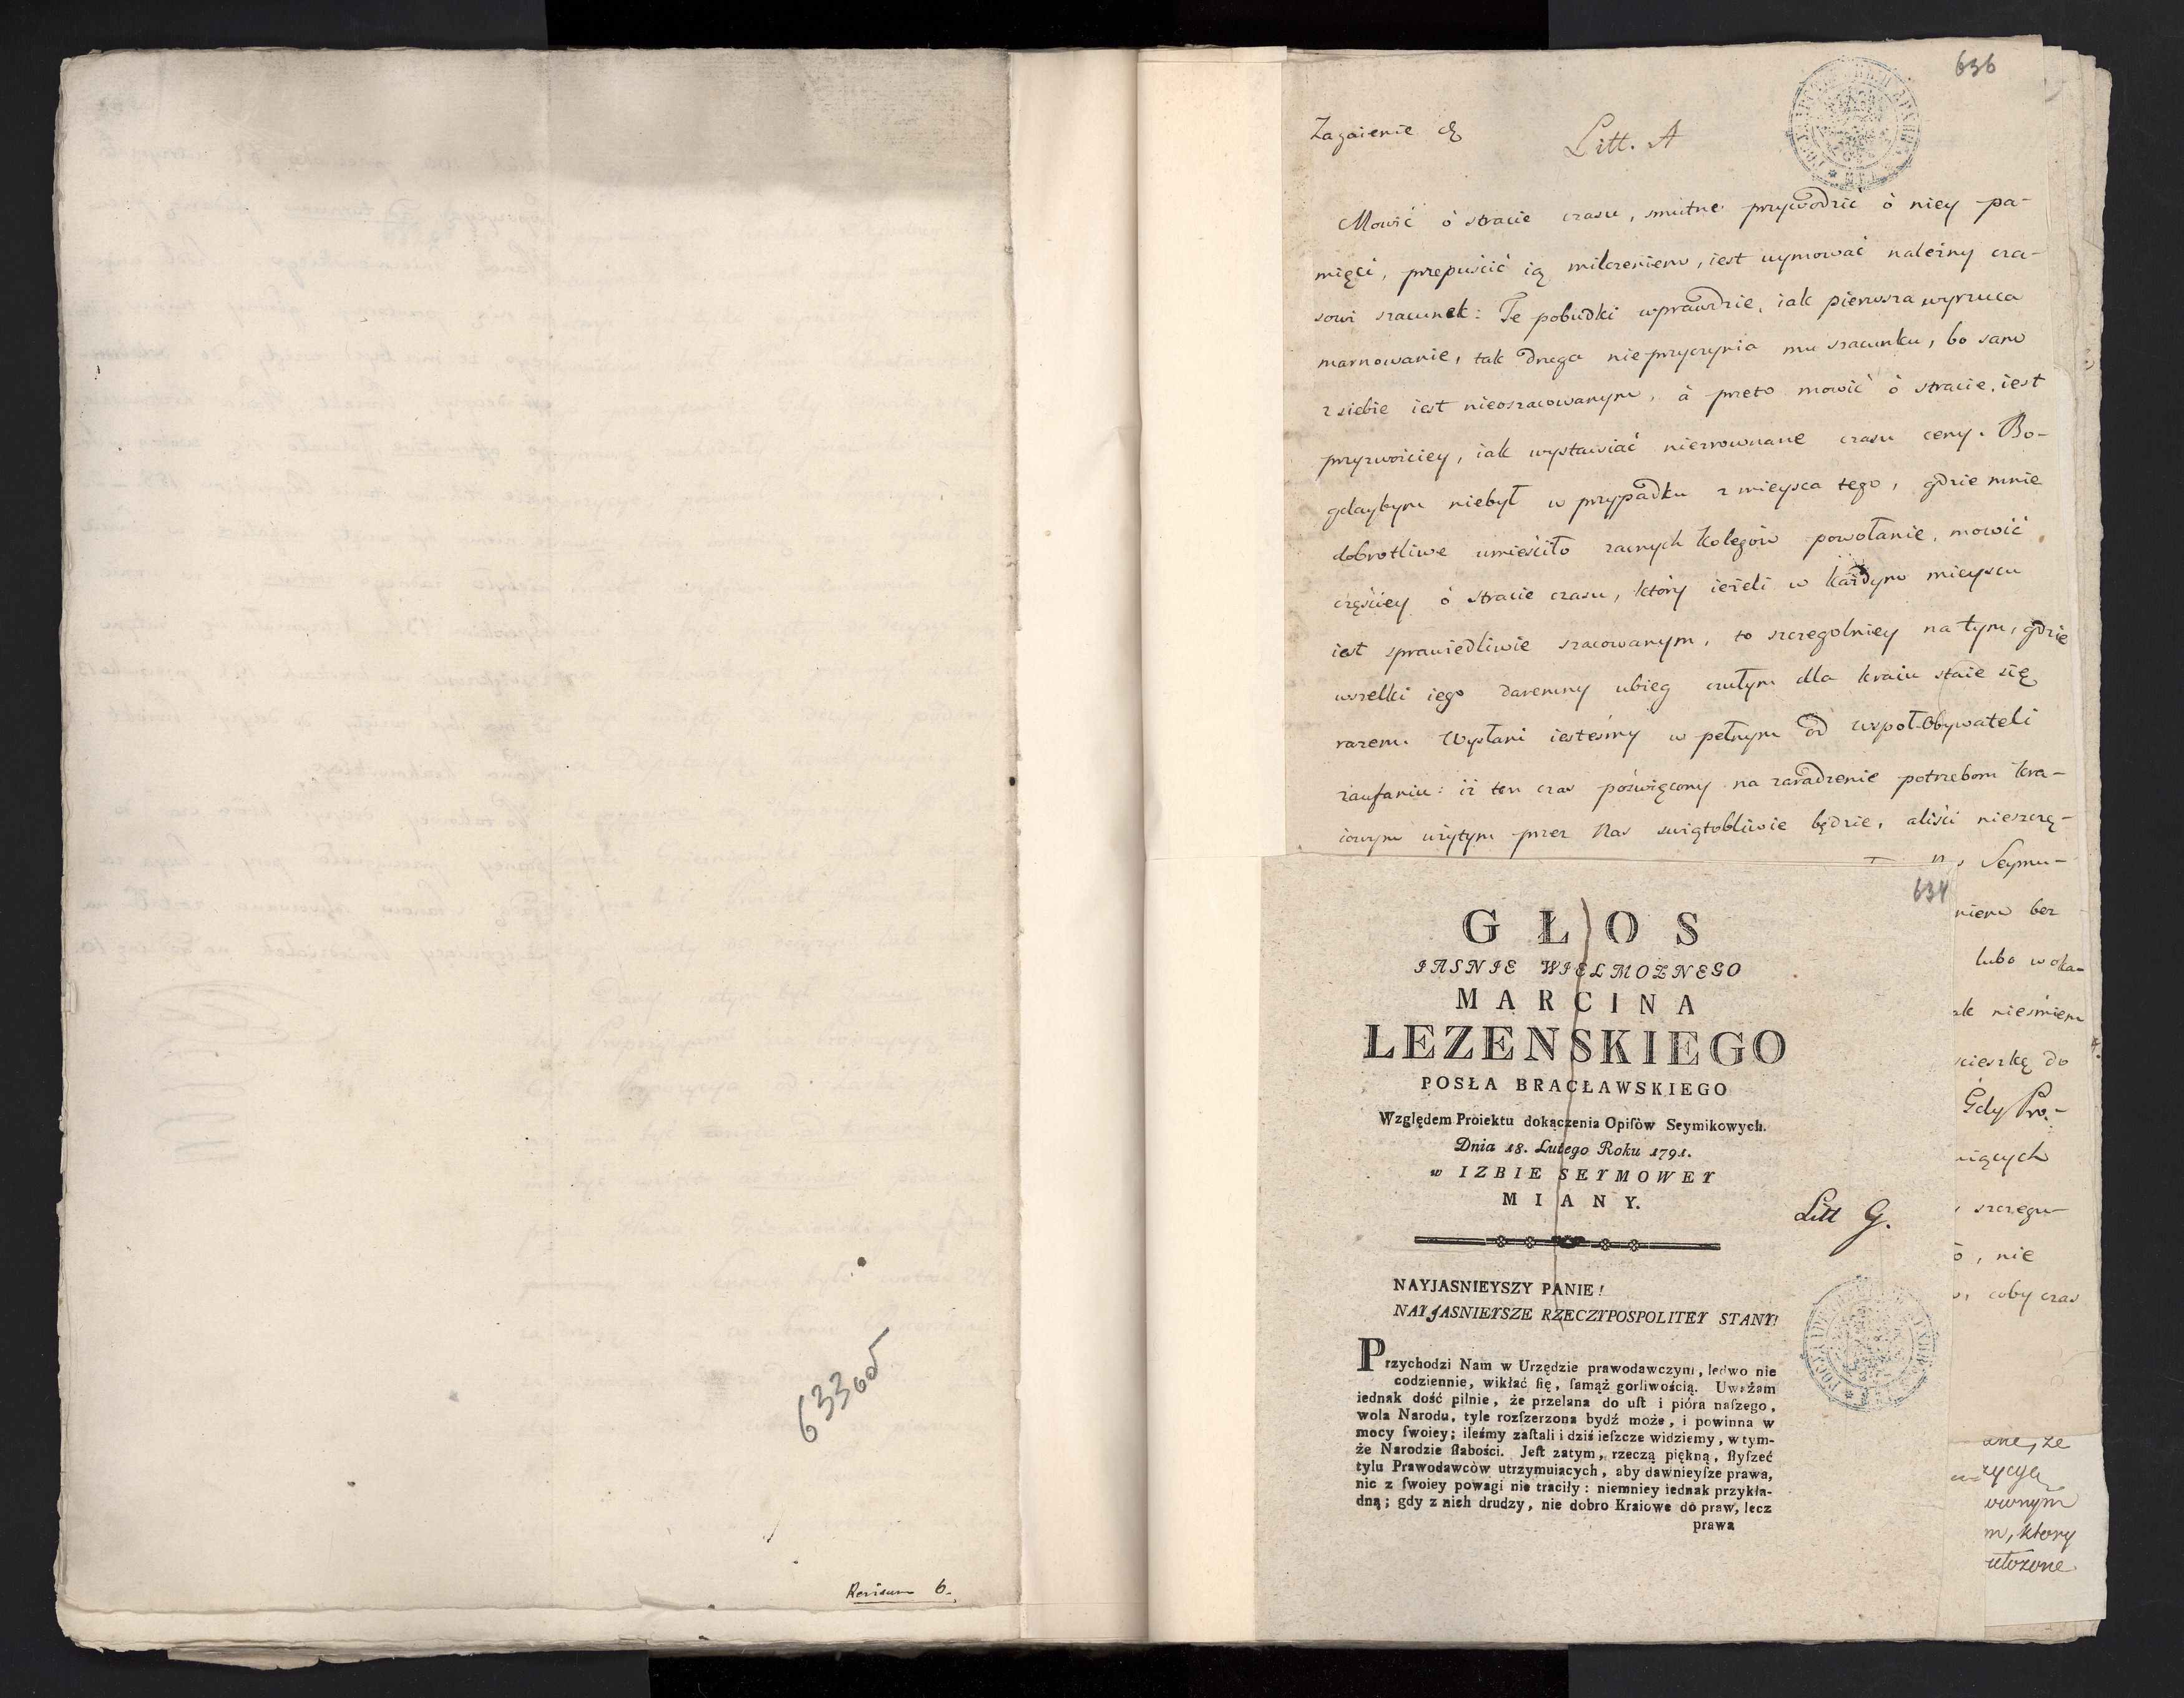 633  об
Revisum 6.
636
Zagaienie
Litt. A
Mowić ó stracie czasu, smutne przywodzić ó niey pa-
mięci, przepuścić ią milczeniem, iest uymować należny cza-
sowi szacunek: Te pobudki wprawdzie, iak pierwsza wyrzuca
marnowanie, tak druga nieprzyczynia mu szacunku, bo sam
z siebie iest nieoszacowanym, á przeto mowić ó stracie, iest
przyzwoiciey, iak wystawiać niezrownane czasu ceny. Bo-
gdaybym niebył w przypadku z mieysca tego, gdzie mnie
dobrotliwe umieściło zacnych Kolegów powołanie, mowić
częściey ó stracie czasu, który ieżeli w każdym mieyscu
iest sprawiedliwie szacowanym, to szczegolniey na tym, gdzie
wszelki iego daremny ubieg czułym dla kraiu staie się
razem. Wysłani iesteśmy w pełnym od wspoł-Obywateli
zaufaniu: iż ten czas poświęcony na zaradzenie potrzebom kra-
iowym użytym przez Nas swiątobliwie będzie, aliści nieszczę-
Seymu-
niem bez
lubo w oka-
ak nieśmiem
scieszkę do
Gdy Pro-
szczegu-
o, nie
coby czas
ane, ze
zycyą
ownym
m, ktory
ułożone
634
GŁOS
IASNIE WIELMOZNEGO
MARCINA
LEZENSKIEGO
POSŁA BRACŁAWSKIEGO
Względem Proiektu dokączenia Opiſòw Seymikowych.
Dnia 18. Lutego Roku 1791.
w IZBIE SEYMOWEY
MIANY.
Litt G.
NAYJASNIEYSZY PANIE!
NAYJASNIEYSZE RZECZYPOSPOLITEY STANY!
Przychodzi Nam w Urzędzie prawodawczym, ledwo nie
codziennie, wikłać ſię, ſamąż gorliwością. Uważam
iednak dość pilnie, że przelana do uſt i pióra naſzego,
wola Narodu, tyle rozſzerzona bydź może, i powinna w
mocy ſwoiey; ileśmy zaſtali i dziś ieſzcze widziemy, w tym-
że Narodzie ſłabości. Jeſt zatym, rzeczą piękną, ſłyſzeć
tylu Prawodawcòw utrzymuiacych, aby dawnieyſze prawa,
nic z ſwoiey powagi nie traciły: niemniey iednak przykła-
dną; gdy z nich drudzy, nie dobro Kraiowe do praw, lecz
prawa